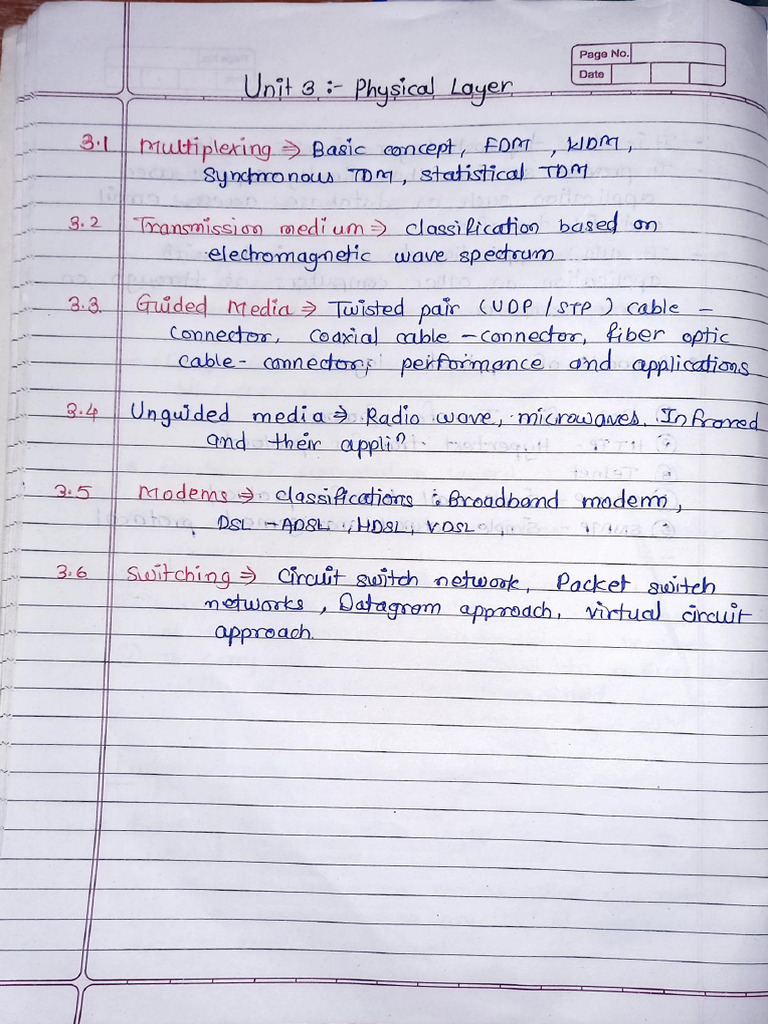 Page No.
Date
Unit 3 :- Physical Layer
3.1 Multiplexing ⇒ Basic concept, FDM, WDM,
Synchronous TDM, statistical TDM
3.2 Transmission medium ⇒ classification based on
electromagnetic wave spectrum
3.3. Guided Media ⇒ Twisted pair (UDP / STP) cable -
connector, coaxial cable - connector, fiber optic
cable - connector, performance and applications
3.4 Unguided media ⇒ Radio wave, microwaves. Infrared
and their appliⁿ.
3.5 Modems ⇒ classifications : Broadband modem,
DSL - ADSL, HDSL, VDSL
3.6 Switching ⇒ Circuit switch network, Packet switch
networks, Datagram approach, virtual circuit
approach.